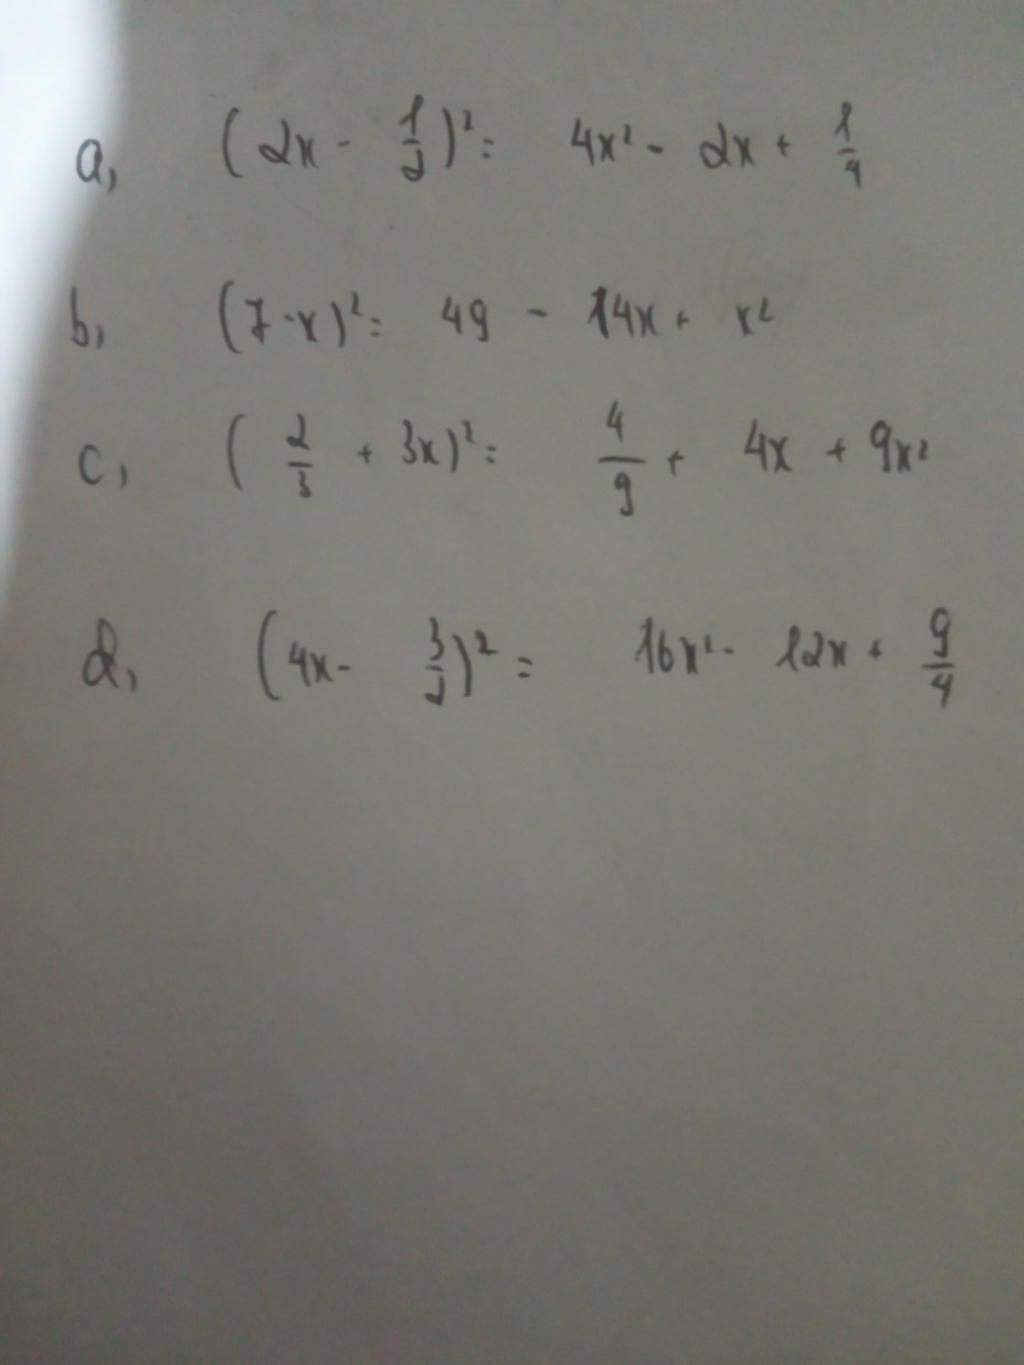 a, (2x - 1/2)² = 4x² - 2x + 1/4
b, (7-x)² = 49 - 14x + x²
c, (2/3 + 3x)² = 4/9 + 4x + 9x²
d, (4x - 3/2)² = 16x² - 12x + 9/4